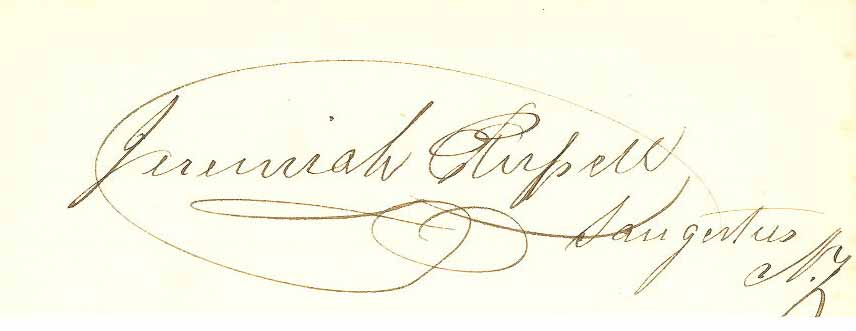 Jeremiah Russell
Saugerties
N.Y.